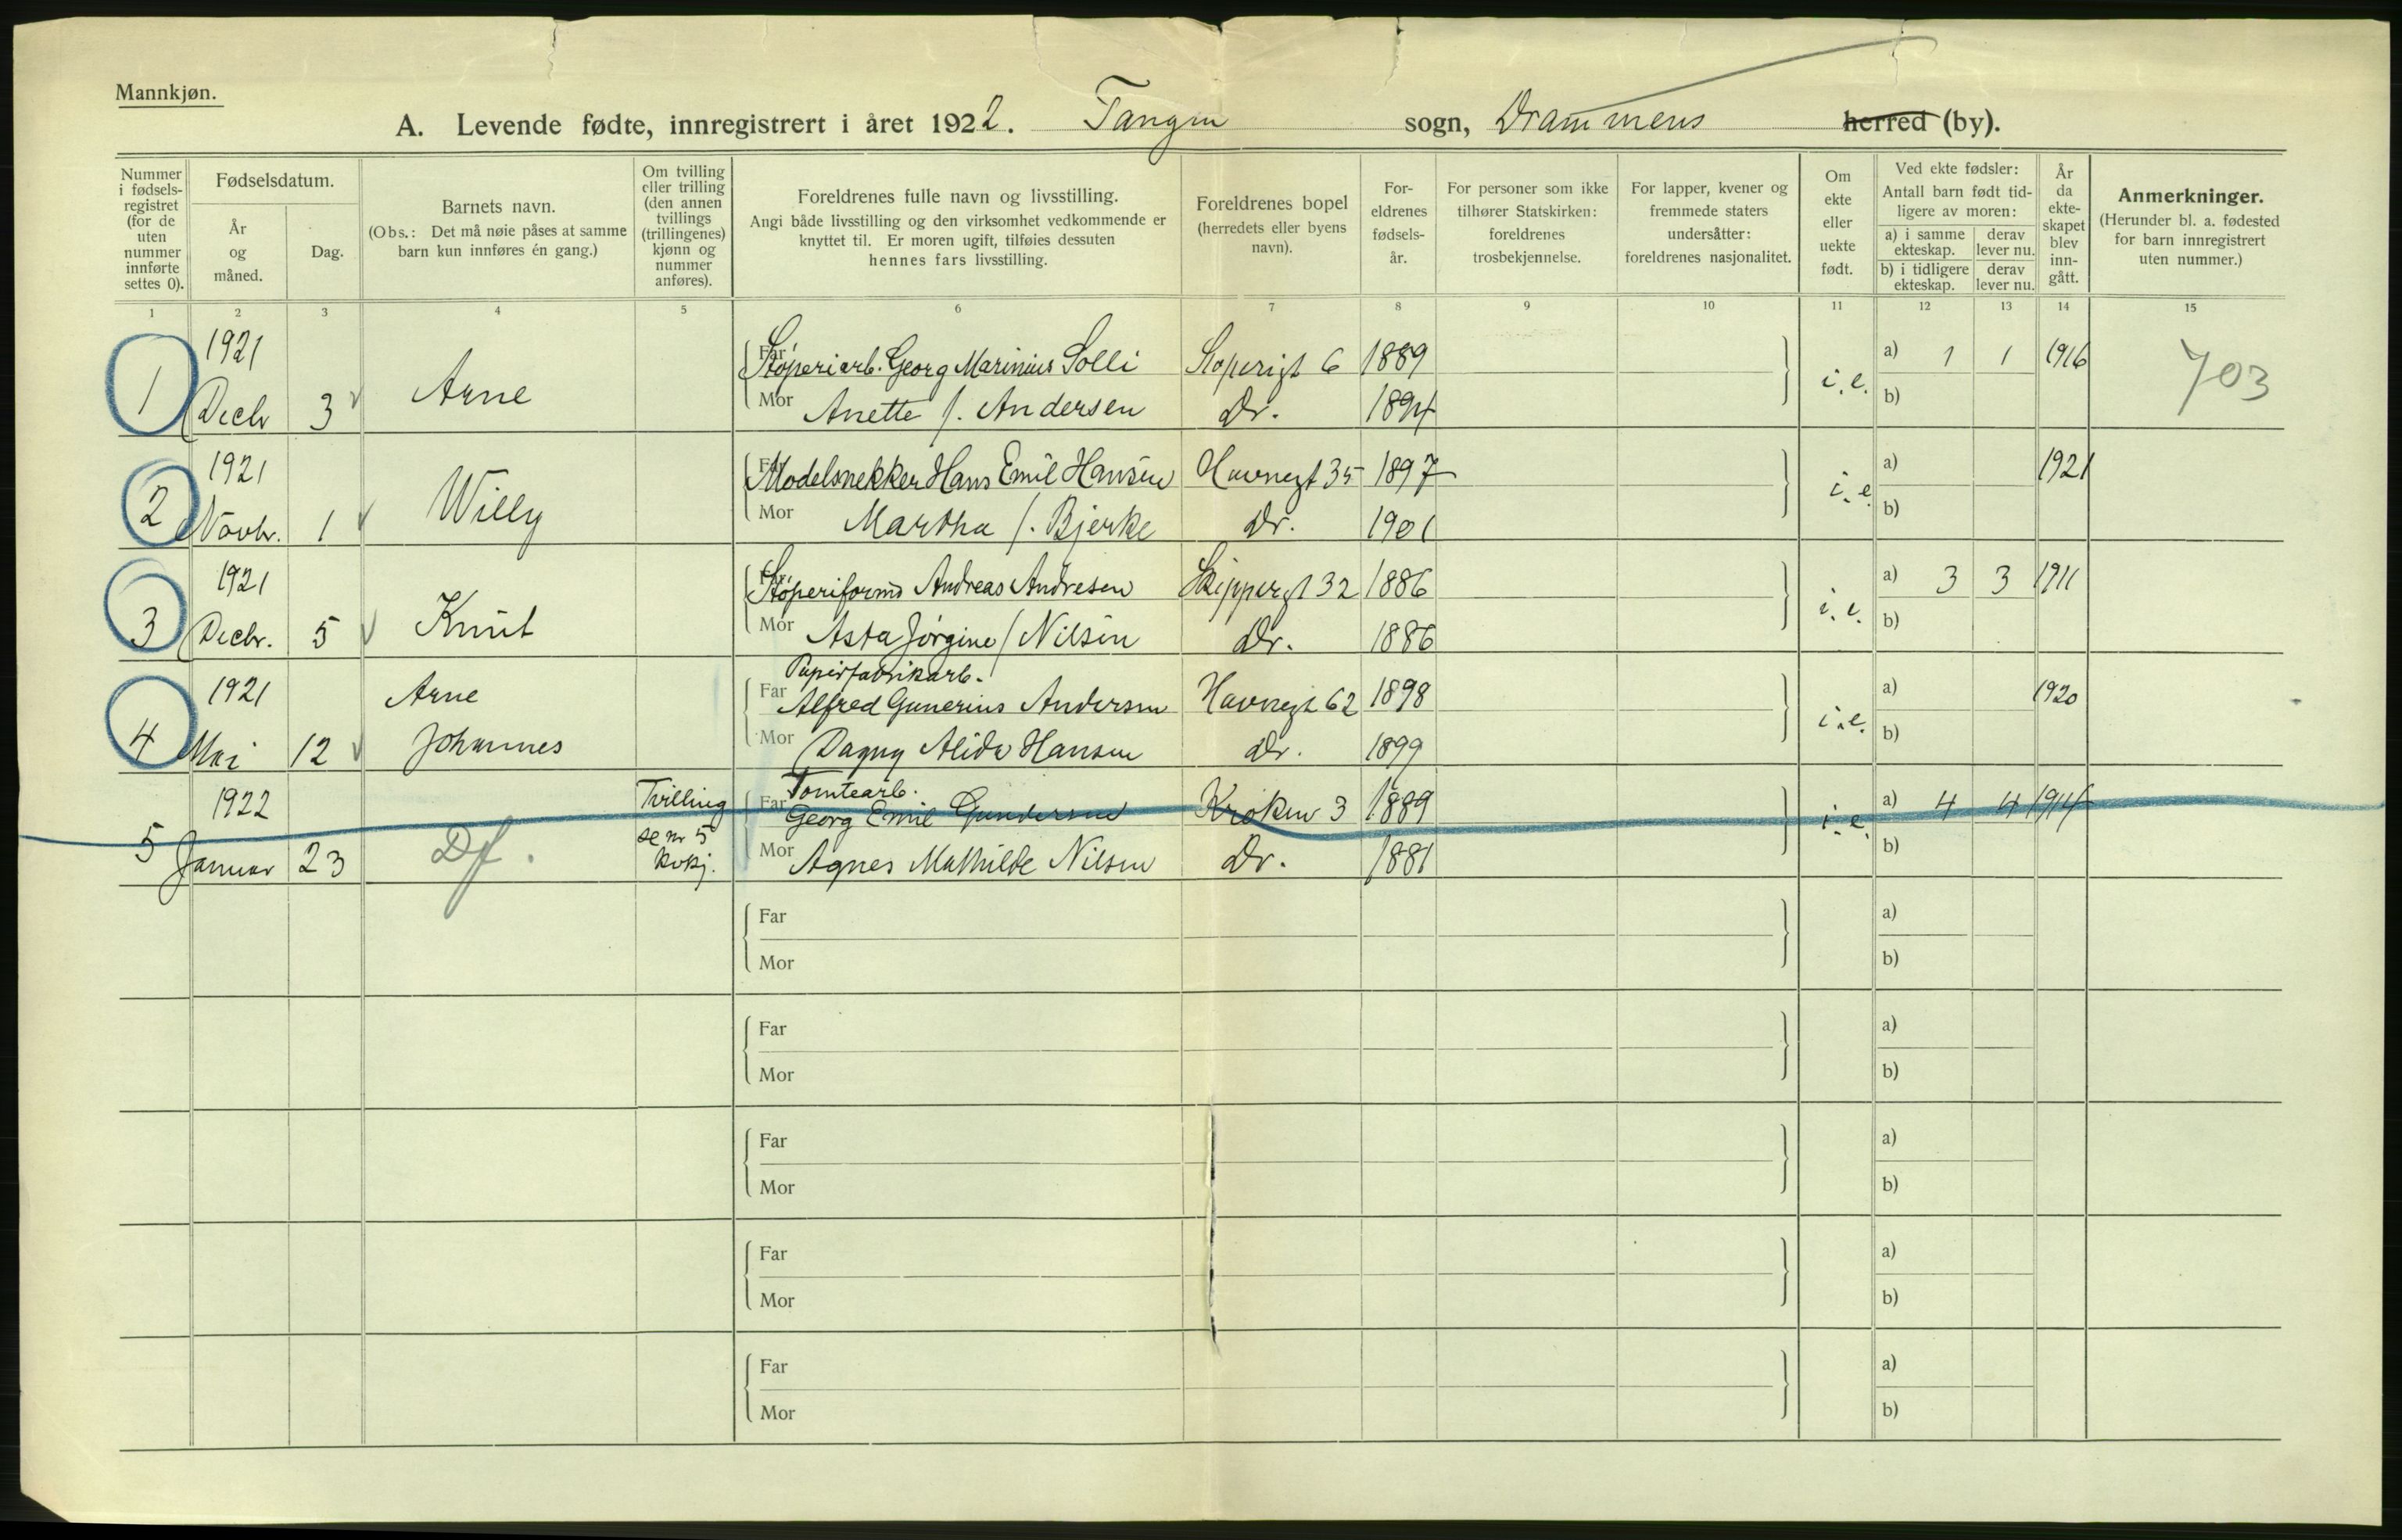 Mannkjøn.
A. Levende fødte, innregistrert i året 1922. Tangen sogn, Drammens herred (by).
Nummer i fødselsregistret (for de uten nummer innførte settes 0).
Fødselsdatum.
År og måned.
Dag.
Barnets navn.
(Obs.: Det må nøie påses at samme barn kun innføres én gang.)
Om tvilling eller trilling (den annen tvillings (trillingenes) kjønn og nummer anføres).
Foreldrenes fulle navn og livsstilling.
Angi både livsstilling og den virksomhet vedkommende er knyttet til. Er moren ugift, tilføies dessuten hennes fars livsstilling.
Foreldrenes bopel (herredets eller byens navn).
Foreldrenes fødselsår.
For personer som ikke tilhører Statskirken: foreldrenes trosbekjennelse.
For lapper, kvener og fremmede staters undersåtter: foreldrenes nasjonalitet.
Om ekte eller uekte født.
Ved ekte fødsler: Antall barn født tidligere av moren:
a) i samme ekteskap. derav lever nu.
b) i tidligere ekteskap. derav lever nu.
År da ekteskapet blev inngått.
Anmerkninger.
(Herunder bl. a. fødested for barn innregistrert uten nummer.)
1 2 3 4 5 6 7 8 9 10 11 12 13 14 15
1 1921 Decbr 3 Arne
Far Støperiarb. Georg Marinius Solli Støperigt 6 1889
Mor Anette f. Andersen Dr. 1894
i. e. a) 1 1 1916 703
b)
2 1921 Novbr. 1 Willy
Far Modelsnekker Hans Emil Hansen Havnegt 35 1897
Mor Martha f. Bjerke Dr. 1901
i. e a) 1921
b)
3 1921 Decbr. 5 Knut
Far Støperiform Andreas Andresen Skippergt 32 1886
Mor Asta Jørgine f Nilsen Dr. 1886
i. e. a) 3 3 1911
b)
4 1921 Mai 12 Arne Johannes
Papirfabrikarb.
Far Alfred Gunerius Andersen Havnegt 62 1898
Mor Dagny Alida Hansen Dr. 1899
i. e. a) 1920
b)
5 1922 Januar 23 Df. Tvilling se nr 5 kvkj.
Tomtearb.
Far Georg Emil Gundersen Kroken 3 1889
Mor Agnes Mathilde Nilsen Dr. 1881
i. e. a) 4 4 1914
b)
Far a)
Mor b)
Far a)
Mor b)
Far a)
Mor b)
Far a)
Mor b)
Far a)
Mor b)